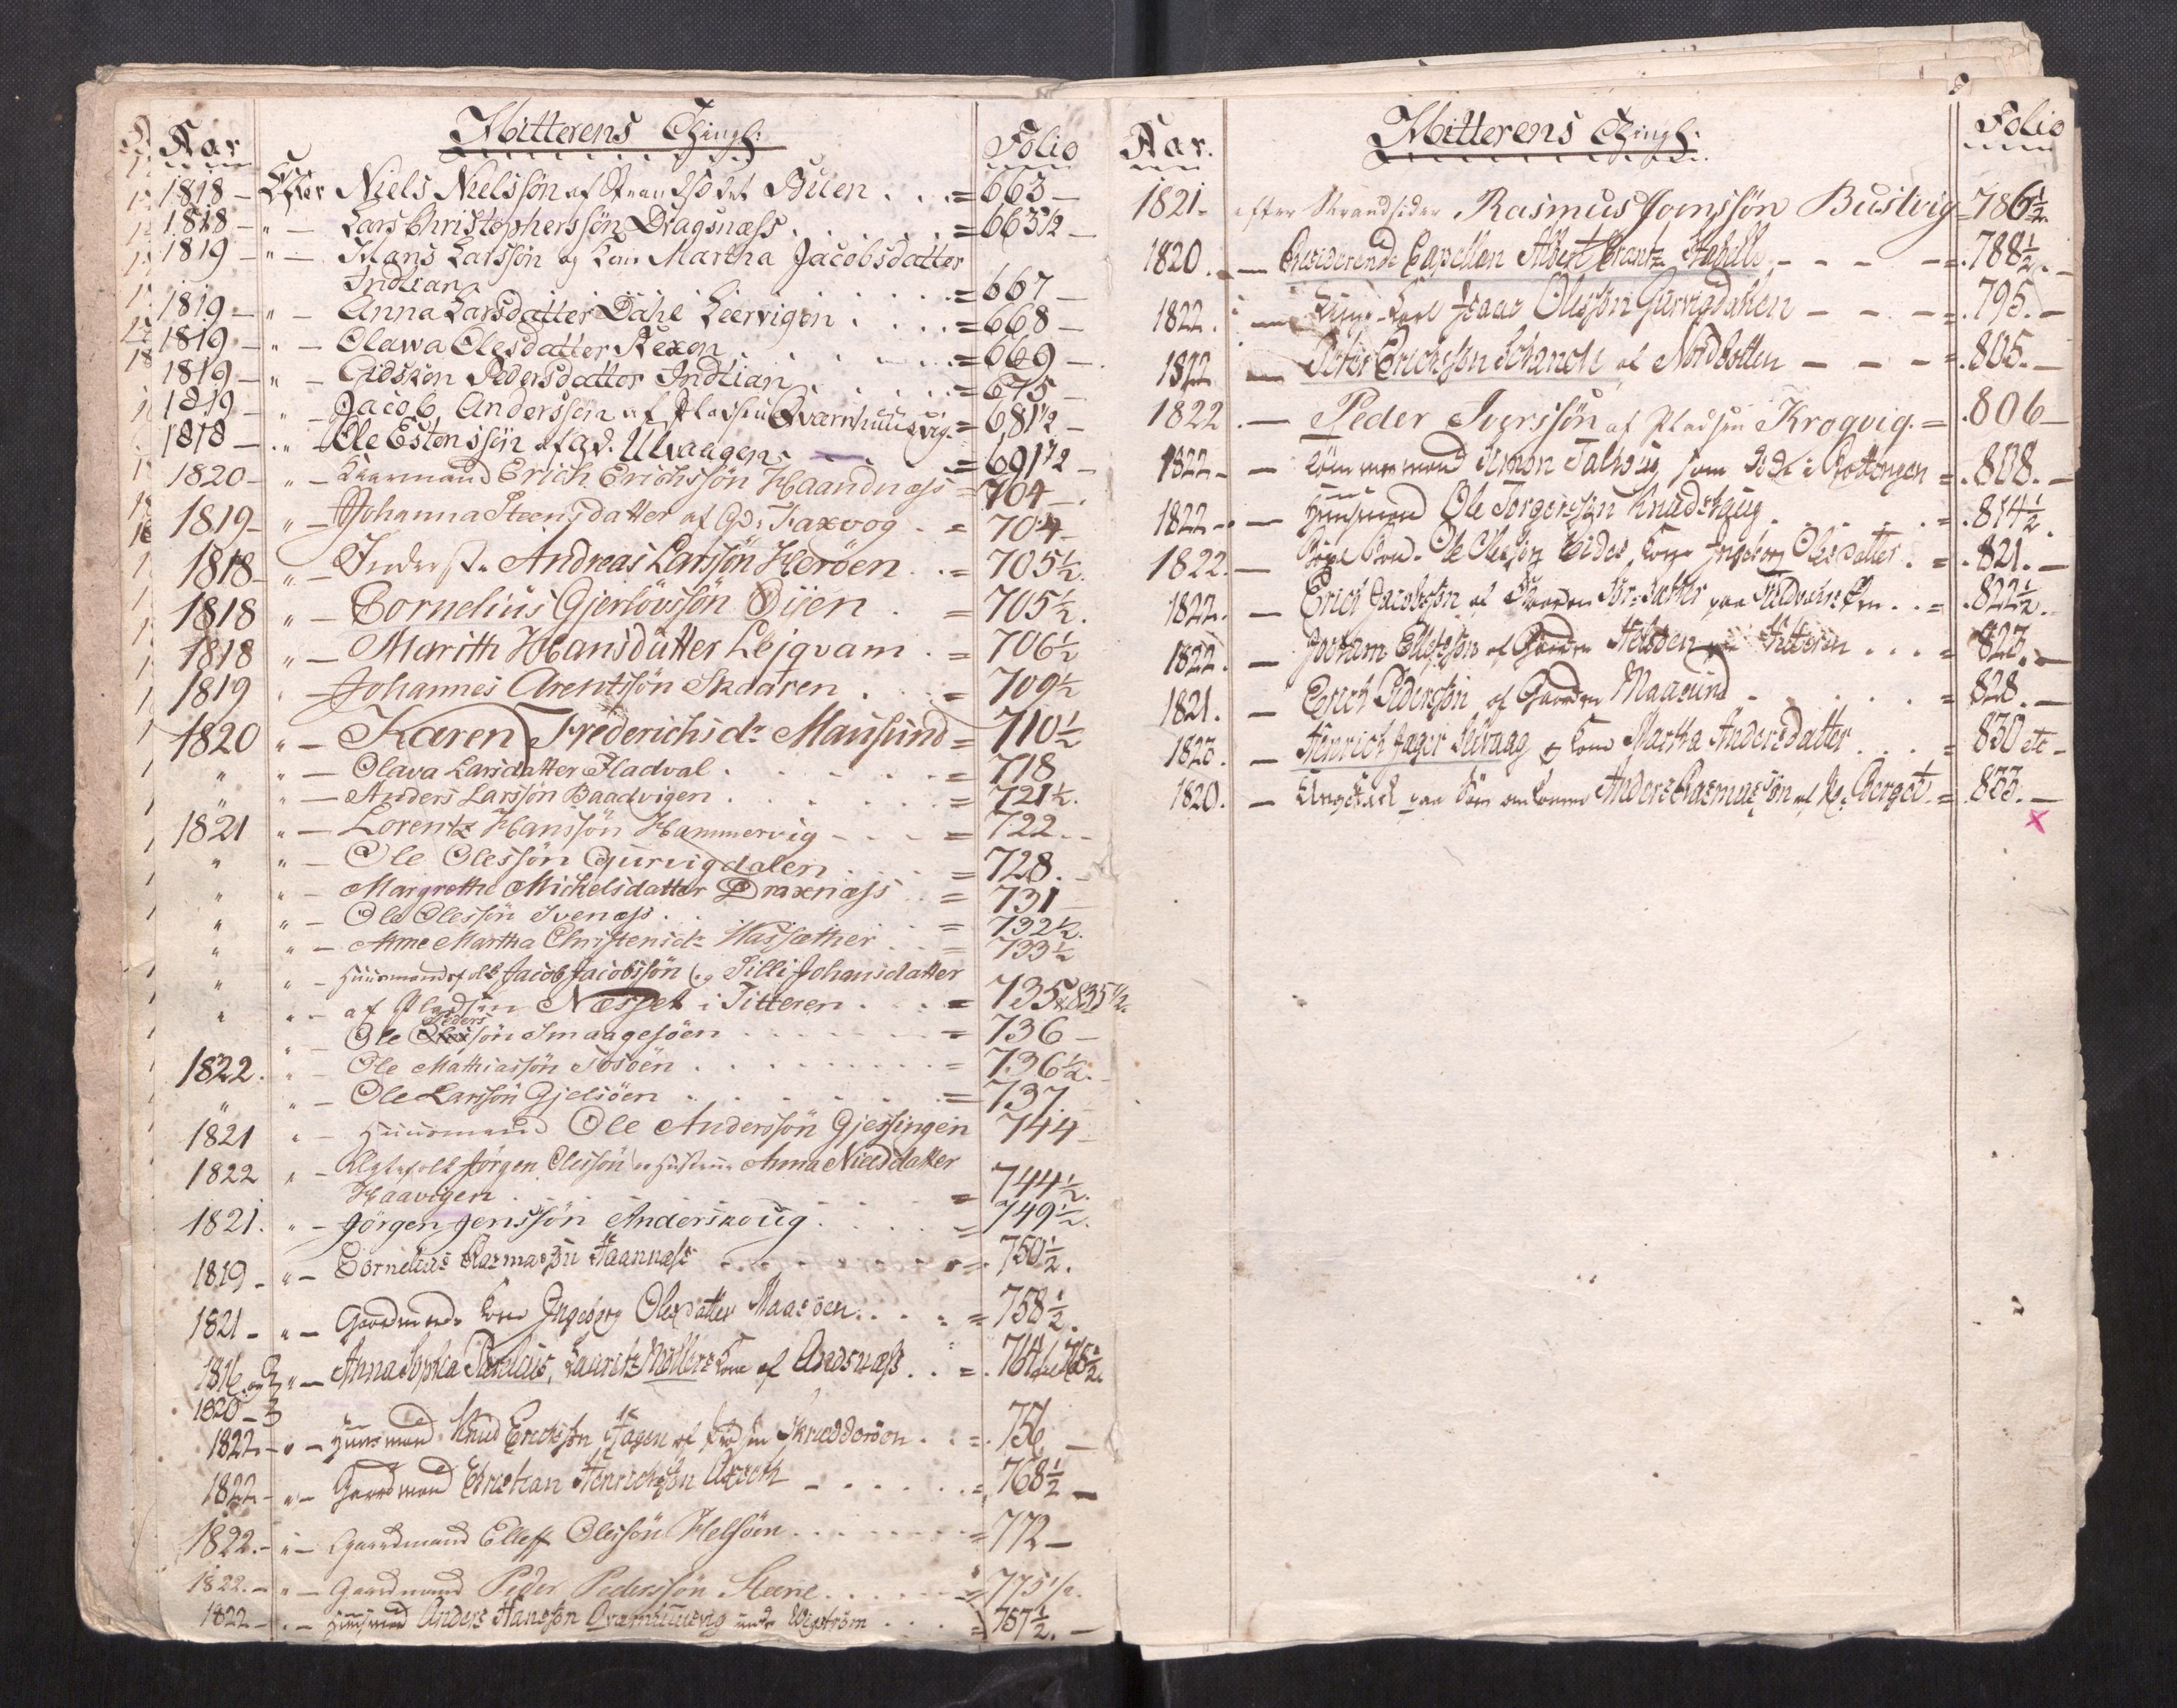 Aar Hitterens Thingl: Folio
1818 – Efter Niels Nielssøn af Strandsædet Buen . . . = 663 –
1818 – " – Lars Christopherssøn Dragsnæss . . . = 663 1/2 –
1819 – " – Mons Larssøn og Kone Martha Jacobsdatter
Indtian . . . = 667 –
1819 – " – Anna Larsdatter Dahl Leervigen . . . = 668 –
1819 – " – Olawa Olesdatter Rexen . . . = 669 –
1819 – " – Gidsken Pedersdatter Indtian . . . = 675 –
1819 – " – Jacob Anderssøn af Pladsen Qværnhuusvig = 681 1/2 –
1818 – " – Ole Estenssøn af Gd. Ulvaagen . . . = 691 1/2 –
1820 – " – Erich Erichssøn Haandnæss = 704 –
1819 – " – Johanna Steensdatter af Gd: Faxvog . = 704 –
1818 – " – Inderst. Andreas Larssøn Herøen . . = 705 1/2.
1818 " – Cornelius Gjerløvssøn Øien . = 705 1/2.
1818 " – Marith Hansdatter Lejqvam . = 706 1/2
1819 " – Johannes Arentssøn Skaaren . . . = 709 1/2
1820 " – Karen Frederichsdr Mausund = 710 1/2
" " – Olava Larsdatter Fladval . . . = 718
" " – Anders Larssøn Baadvigen . . . = 721 1/2.
1821 " – Lorentz Hanssøn Hammervig – – – = 722 –
" " – Ole Olessøn Gurvigdalen . . . = 728. –
" " – Margrethe Mickelsdatter Draxnæss . . = 731 –
" " – Ole Olessøn Svenæss . . . = 732 1/2.
" " – Anne Martha Christensdr Hassæther . . = 733 1/2
" " – Huusmandsfolk Jacob Jacobssøn og Silli Johansdatter
" " – af Pladsen Næsset i Fitteren . . . = 735 & 835 1/2.
" – Ole Peders søn Smaagesøen . . . = 736 –
1822. " – Ole Mathiassøn Sosøen . . . = 736 1/2. –
" " – Ole Larssøn Gjelsøen . . . = 737.
1821 " – Huusmand Ole Anderssøn Gjessingen 744 –
1822 " – Ægtefolk Jørgen Olessøn og Hustrue Anna Nielsdatter
Haavigen . . . = 744 1/2.
1821. " – Jørgen Jenssøn Anderskoug . . . = 749 1/2.
1819 – " – Cornelius Rasmussøn Haannæss . . . = 750 1/2.
1821 – " – Gaardmands Kone Ingeborg Olesdatter Maasøen . . . = 758 1/2.
1816. og " – Anna Sophia Parelius, Lauritz Møllers Kone af Andsnæss . . = . 764 765 1/2.
1820 – 3
1822 – " – Huusmand Knud Erichssøn Hagen af Pladsen Skredderøen . . = . 756 –
1822 – " – Gaardmand Christian Henrichssøn Ulvæth – . . . = 768 1/2 –
1822. – " – Gaardmand Elleff Olessøn Helsøen . . . = 772 –
1822. – " – Gaardmand Peder Pederssøn Steene . . . = 775 1/2.
1822 – " – Huusmand Anders Hanssøn Qværnhuusvig under Wigstrøm . . . = 757 1/2. –
Aar. Hitterens Thingl: Folio
1821 – efter Strandsidder Rasmus Joenssøn Bustvig = 786 1/2.
1820. – Residerende Capellan Albert Krantz Stabell – – – – = 788 1/2. –
1822. – Isaac Olessøn Gurvigdahlen – – – = . 795. –
1822 – Peter Erichssøn Schanche af Nordbotten – – – = . 805. –
1822 . – Peder Iverssøn af Pladsen Krogvig . = . 806 –
1822 – – Tømmermand Simon som døde i = . 808. –
1822 – . – Huusmand Ole Torgerssøn Knudshaug . . . = . 814 1/2.
1822. – Ole Olessøn Kone Ingeborg Olesdatter . = . 821. –
1822. – Erich Jacobssøn af Gaarden Sør-Sætter paa . . = . 822 1/2.
1822. – Jochum Ellefssøn af Gaarden paa Hitteren . . . = 823. –
1821. – Erich Pederssøn af Gaarden Maasund . . . = 828. –
1820. – Henrich Jager Ulvaag & Kone Martha Andersdatter . . . = 830 etc –
1820. – Ungkarl paa Søen omkomne Anders Rasmussøn af Berget = . 833. –
x